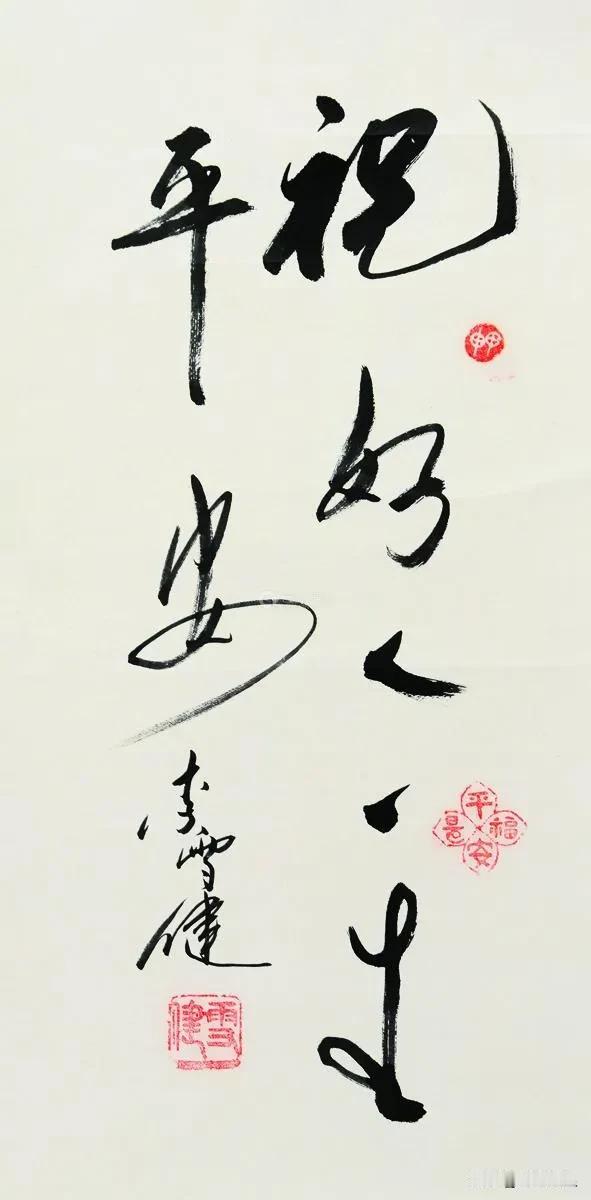 祝好人一生
平安
李雪健
平安是福
雪健